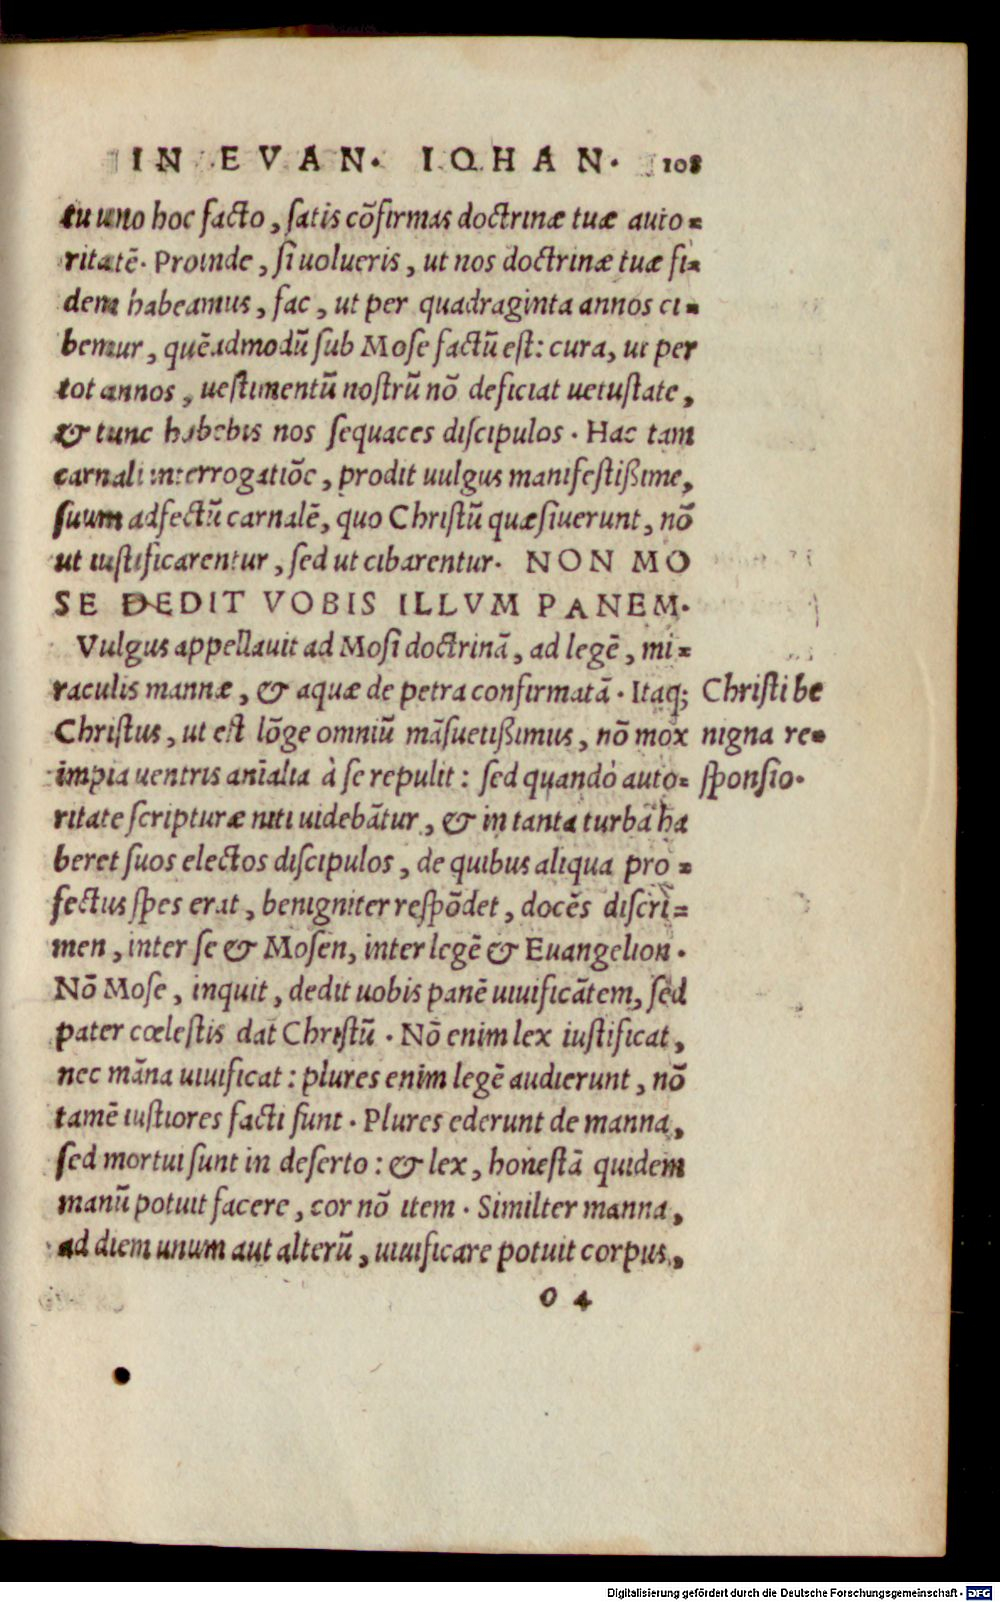 IN EVAN. IOHAN. 108
tu uno hoc facto, satis cõfirmas doctrinæ tuæ auto=
ritatẽ. Proinde, si uolueris, ut nos doctrinæ tuæ fi=
dem habeamus, fac, ut per quadraginta annos ci=
bemur, quẽadmodũ sub Mose factũ est: cura, ut per
tot annos, uestimentũ nostrũ nõ deficiat uetustate,
& tunc habebis nos sequaces discipulos. Hac tam
carnali interrogatiõe, prodit uulgus manifestißime,
suum adfectũ carnalẽ, quo Christũ quæsiuerunt, nõ
ut iustificarentur, sed ut cibarentur. NON MO
SE DEDIT VOBIS ILLVM PANEM.
Vulgus appellauit ad Mosi doctrinã, ad legẽ, mi=
raculis mannæ, & aquæ de petra confirmatã. Itaq;
Christus, ut est lõge omniũ mãsuetißimus, nõ mox
impia uentris anĩalia à se repulit: sed quando auto=
ritate scripturæ niti uidebãtur, & in tanta turba ha
beret suos electos discipulos, de quibus aliqua pro=
fectus spes erat, benigniter respõdet, docẽs discri=
men, inter se & Mosen, inter legẽ & Euangelion.
Nõ Mose, inquit, dedit uobis panẽ uiuificãtem, sed
pater cœlestis dat Christũ. Nõ enim lex iustificat,
nec mãna uiuificat: plures enim legẽ audierunt, nõ
tamẽ iustiores facti sunt. Plures ederunt de manna,
sed mortui sunt in deserto: & lex, honestã quidem
manũ potuit facere, cor nõ item. Similter manna,
ad diem unum aut alterũ, uiuificare potuit corpus,
Christi be
nigna re=
sponsio.
O 4
Digitalisierung gefördert durch die Deutsche Forschungsgemeinschaft - DFG